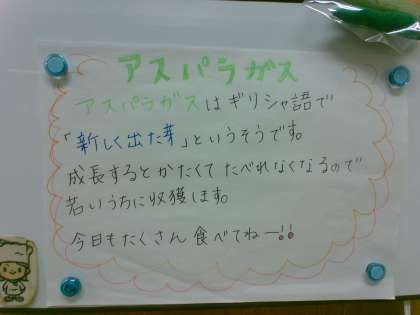 アスパラガス
アスパラガスはギリシャ語で
「新しく出た芽」というそうです。
成長するとかたくて たべれなくなるので
若いうちに収獲します。
今日もたくさん 食べてねー!!